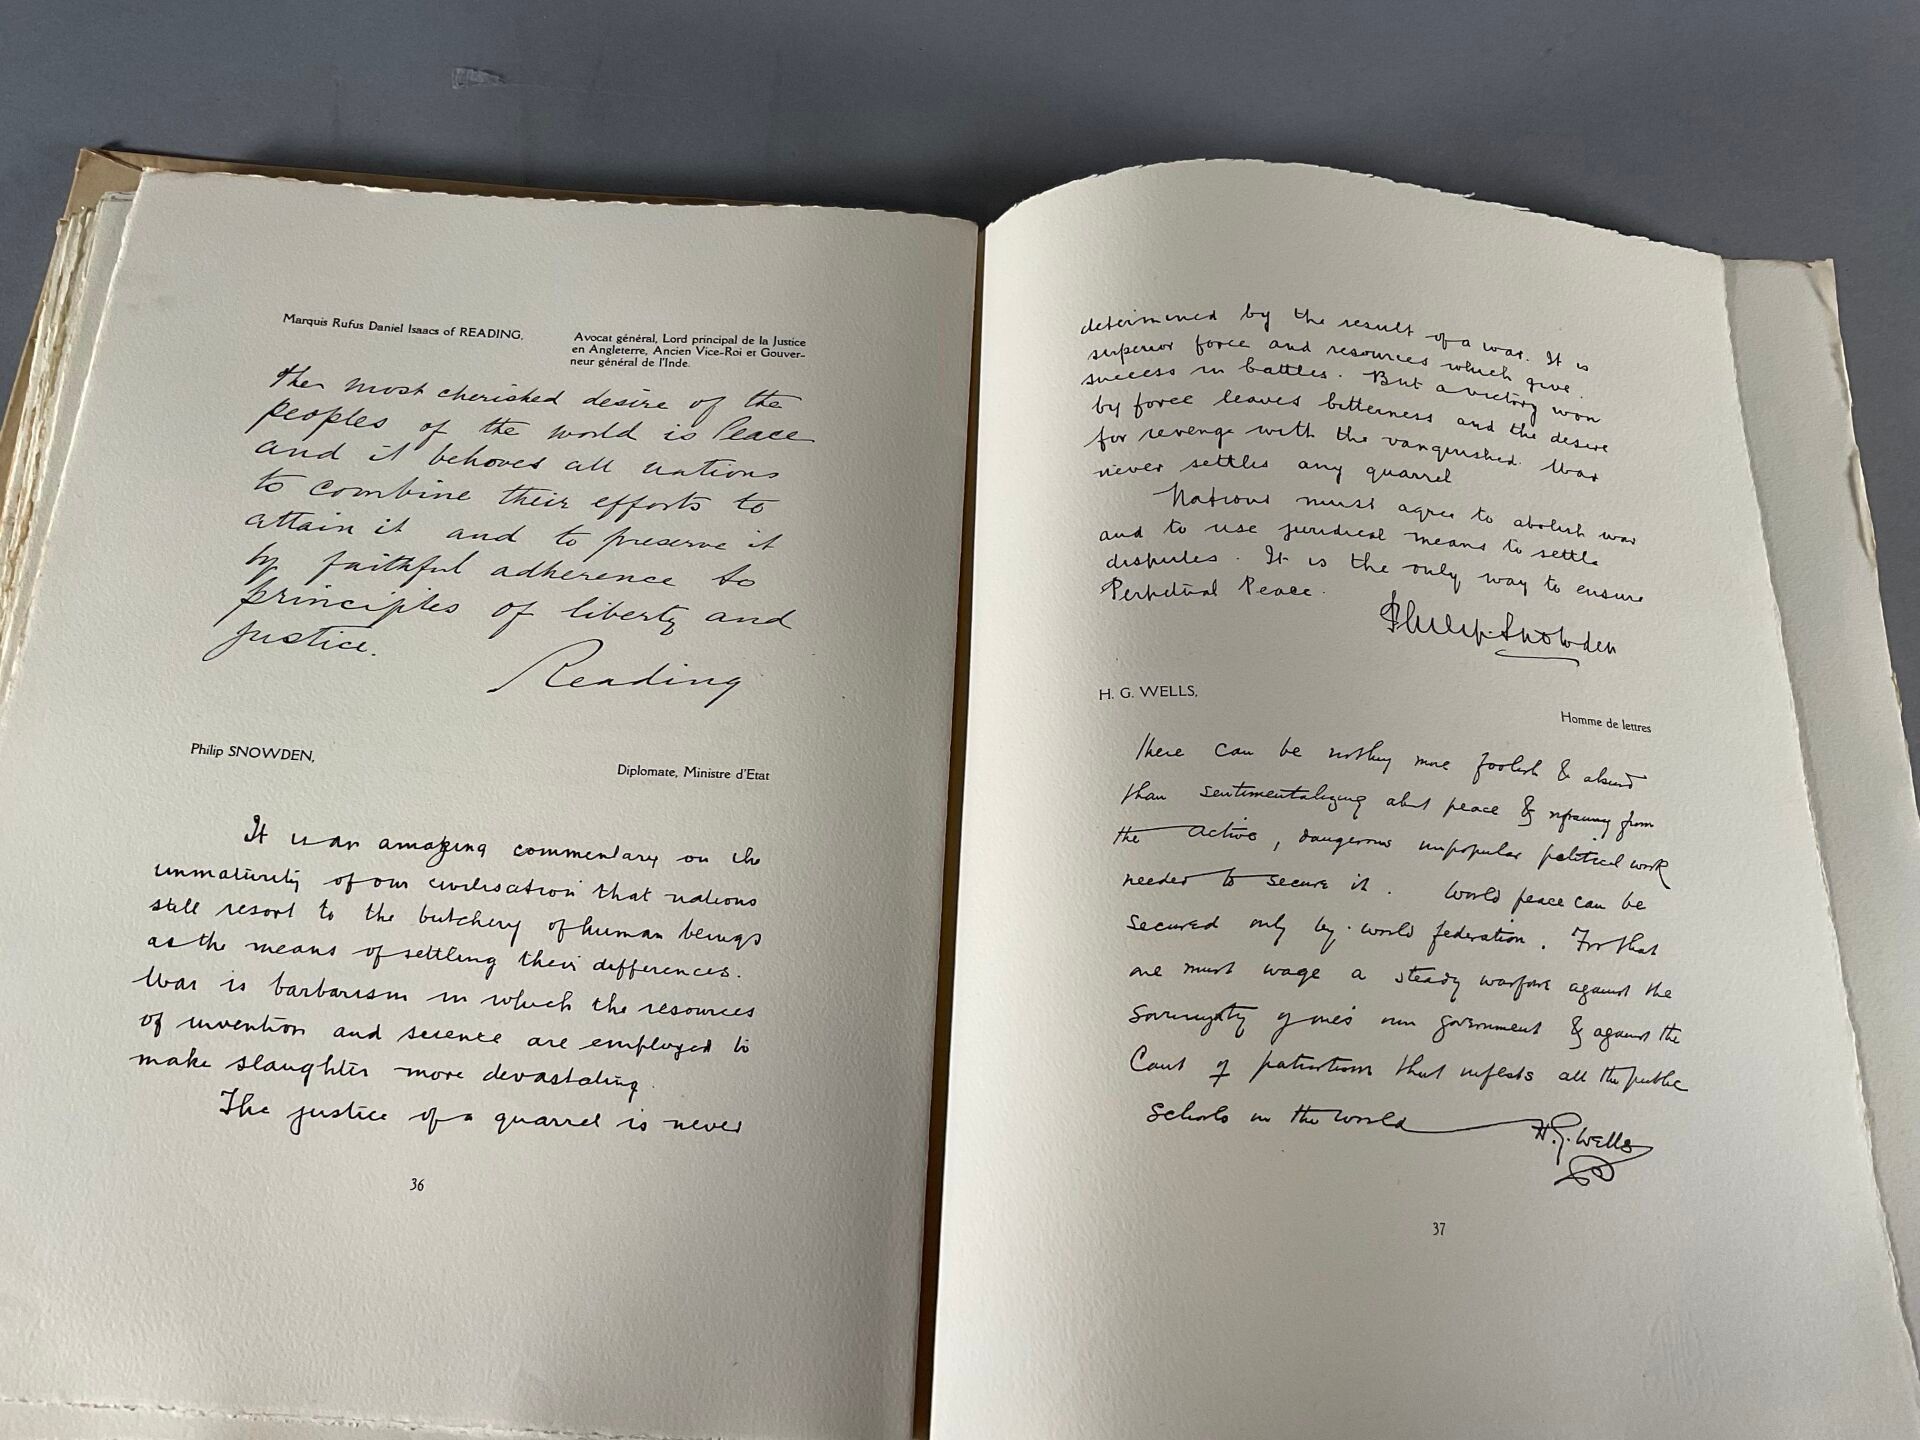 Marquis Rufus Daniel Isaacs of READING,
Avocat général, Lord principal de la Justice
en Angleterre, Ancien Vice-Roi et Gouver-
neur général de l'Inde.
The most cherished desire of the
peoples of the world is Peace
and it behoves all nations
to combine their efforts to
attain it and to preserve it
by faithful adherence to
principles of liberty and
justice.
Reading
Philip SNOWDEN,
Diplomate, Ministre d'Etat
It is an amazing commentary on the
immaturity of our civilisation that nations
still resort to the butchery of human beings
as the means of settling their differences.
War is barbarism in which the resources
of invention and science are employed to
make slaughter more devastating.
The justice of a quarrel is never
36
determined by the result of a war. It is
superior force and resources which give
success in battles. But a victory won
by force leaves bitterness and the desire
for revenge with the vanquished. War
never settles any quarrel
Nations must agree to abolish war
and to use juridical means to settle
disputes. It is the only way to ensure
Perpetual Peace.
Philip Snowden
H. G. WELLS,
Homme de lettres
There can be nothing more foolish & absurd
than sentimentalizing about peace & refraining from
the active, dangerous unpopular political work
needed to secure it. World peace can be
secured only by world federation. For that
one must wage a steady warfare against the
sovereignty of one's own government & against the
Cant of patriotism that infests all the public
schools in the world
H. G. Wells
37